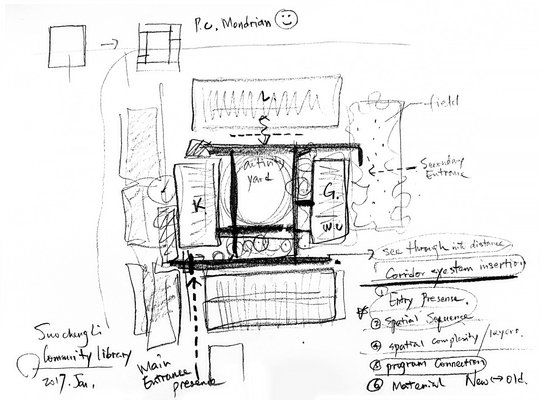 P.C. Mondrian
field
Secondary
Entrance
activity
yard
K
G.
W.U
see through into distance
Corridor system insertion
① Entry Presence.
② Spatial Sequence
④ spatial complexity / layers.
⑤ program Connection
⑥ Material New ↔ Old.
Main
Entrance
presence
Suochengli
Community library
2017. Jan.